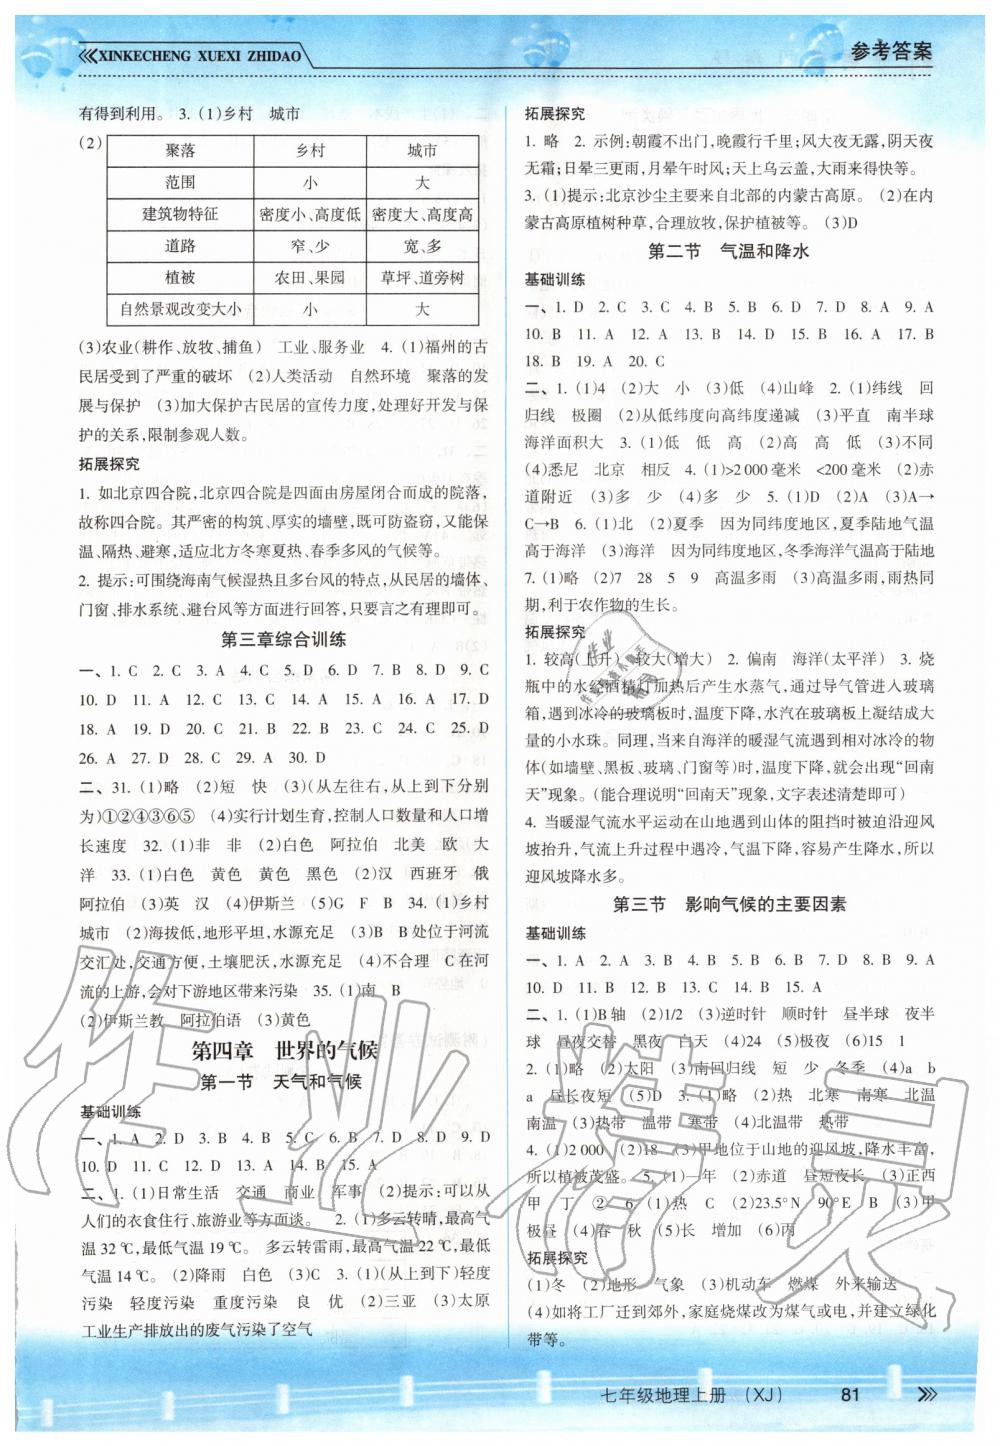 XINKECHENG XUEXI ZHIDAO
参考答案
有得到利用。 3. (1)乡村 城市
(2)
聚落 乡村 城市
范围 小 大
建筑物特征 密度小、高度低 密度大、高度高
道路 窄、少 宽、多
植被 农田、果园 草坪、道旁树
自然景观改变大小 小 大
(3)农业(耕作、放牧、捕鱼) 工业、服务业 4. (1)福州的古
民居受到了严重的破坏 (2)人类活动 自然环境 聚落的发
展与保护 (3)加大保护古民居的宣传力度,处理好开发与保
护的关系,限制参观人数。
拓展探究
1. 如北京四合院,北京四合院是四面由房屋闭合而成的院落,
故称四合院。其严密的构筑、厚实的墙壁,既可防盗窃,又能保
温、隔热、避寒,适应北方冬寒夏热、春季多风的气候等。
2. 提示:可围绕海南气候湿热且多台风的特点,从民居的墙体、
门窗、排水系统、避台风等方面进行回答,只要言之有理即可。
第三章综合训练
一、1. C 2. C 3. A 4. C 5. D 6. D 7. B 8. D 9. C
10. D 11. A 12. C 13. C 14. A 15. A 16. A 17. D
18. A 19. D 20. C 21. B 22. B 23. C 24. C 25. D
26. A 27. D 28. C 29. A 30. D
二、31. (1)略 (2)短 快 (3)(从左往右,从上到下分别
为)①②④③⑥⑤ (4)实行计划生育,控制人口数量和人口增
长速度 32. (1)非 非 (2)白色 阿拉伯 北美 欧 大
洋 33. (1)白色 黄色 黄色 黑色 (2)汉 西班牙 俄
阿拉伯 (3)英 汉 (4)伊斯兰 (5)G F B 34. (1)乡村
城市 (2)海拔低,地形平坦,水源充足 (3)B B处位于河流
交汇处,交通方便,土壤肥沃,水源充足 (4)不合理 C在河
流的上游,会对下游地区带来污染 35. (1)南 B
(2)伊斯兰教 阿拉伯语 (3)黄色
第四章 世界的气候
第一节 天气和气候
基础训练
一、1. A 2. D 3. B 4. B 5. C 6. B 7. D 8. D 9. D
10. D 11. C 12. D 13. A 14. B 15. A
二、1. (1)日常生活 交通 商业 军事 (2)提示:可以从
人们的衣食住行、旅游业等方面谈。 2. (1)多云转晴,最高气
温 32 ℃,最低气温 19 ℃。 多云转雷雨,最高气温 22 ℃,最低
气温 14 ℃。 (2)降雨 白色 (3)C 3. (1)(从上到下)轻度
污染 轻度污染 重度污染 良 优 (2)三亚 (3)太原
工业生产排放出的废气污染了空气
拓展探究
1. 略 2. 示例:朝霞不出门,晚霞行千里;风大夜无露,阴天夜
无霜;日晕三更雨,月晕午时风;天上乌云盖,大雨来得快等。
3. (1)提示:北京沙尘主要来自北部的内蒙古高原。 (2)在内
蒙古高原植树种草,合理放牧,保护植被等。 (3)D
第二节 气温和降水
基础训练
一、1. D 2. C 3. C 4. B 5. B 6. D 7. D 8. A 9. A
10. B 11. A 12. A 13. B 14. D 15. B 16. A 17. B
18. B 19. A 20. C
二、1. (1)4 (2)大 小 (3)低 (4)山峰 2. (1)纬线 回
归线 极圈 (2)从低纬度向高纬度递减 (3)平直 南半球
海洋面积大 3. (1)低 低 高 (2)高 低 (3)不同
(4)悉尼 北京 相反 4. (1)>2 000 毫米 <200 毫米 (2)赤
道附近 (3)多 少 (4)多 少 5. (1)D (2)A (3)A→
C→B 6. (1)北 (2)夏季 因为同纬度地区,夏季陆地气温
高于海洋 (3)海洋 因为同纬度地区,冬季海洋气温高于陆地
7. (1)略 (2)7 28 5 9 高温多雨 (3)高温多雨,雨热同
期,利于农作物的生长。
拓展探究
1. 较高(上升) 较大(增大) 2. 偏南 海洋(太平洋) 3. 烧
瓶中的水经酒精灯加热后产生水蒸气,通过导气管进入玻璃
箱,遇到冰冷的玻璃板时,温度下降,水汽在玻璃板上凝结成大量
的小水珠。同理,当来自海洋的暖湿气流遇到相对冰冷的物
体(如墙壁、黑板、玻璃、门窗等)时,温度下降,就会出现“回南
天”现象。(能合理说明“回南天”现象,文字表述清楚即可)
4. 当暖湿气流水平运动在山地遇到山体的阻挡时被迫沿迎风
坡抬升,气流上升过程中遇冷,气温下降,容易产生降水,所以
迎风坡降水多。
第三节 影响气候的主要因素
基础训练
一、1. C 2. C 3. A 4. D 5. B 6. A 7. B 8. B 9. A
10. D 11. B 12. C 13. A 14. B 15. A
二、1. (1)B轴 (2)1/2 (3)逆时针 顺时针 昼半球 夜半
球 昼夜交替 黑夜 白天 (4)24 (5)极昼 (6)15 1
2. (1)略 (2)太阳 (3)南回归线 短 少 冬季 (4)a b
a 昼长夜短 (5)D 3. (1)热 北寒 北温 南寒 北温
南温 (3)热带 温带 寒带 (4)北温带 热带
4. (1)2 000 (2)18 (3)甲地位于山地的迎风坡,降水丰富,
所以植被茂盛。 5. (1)一年 (2)赤道 昼短夜长 (3)正西
甲 丁 ② 6. (1)热 C (2)23.5°N 90°E B (3)甲
极昼 (4)春 秋 (5)长 增加 (6)丙
拓展探究
(1)冬 (2)地形 气象 (3)机动车 燃煤 外来输送
(4)如将工厂迁到郊外,家庭烧煤改为煤气或电,并建立绿化
带等。
七年级地理上册 (XJ) 81
作业精灵